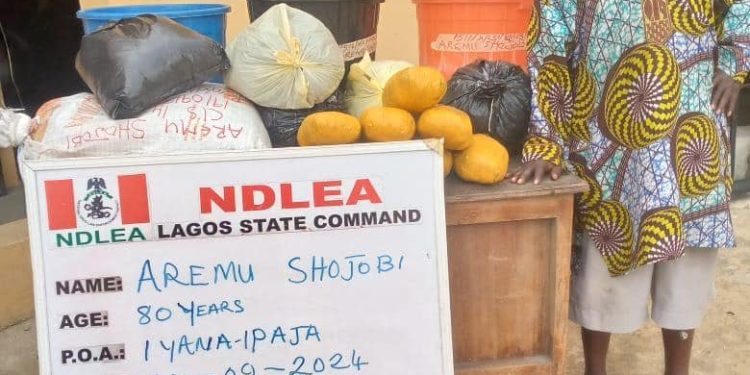 AREMU SHOJOBI
AREMU
SHOJOBI
NDLEA
NDLEA LAGOS STATE COMMAND
NAME: AREMU SHOJOBI
AGE: 80 YEARS
P.O.A.: IYANA-IPAJA
09-2024